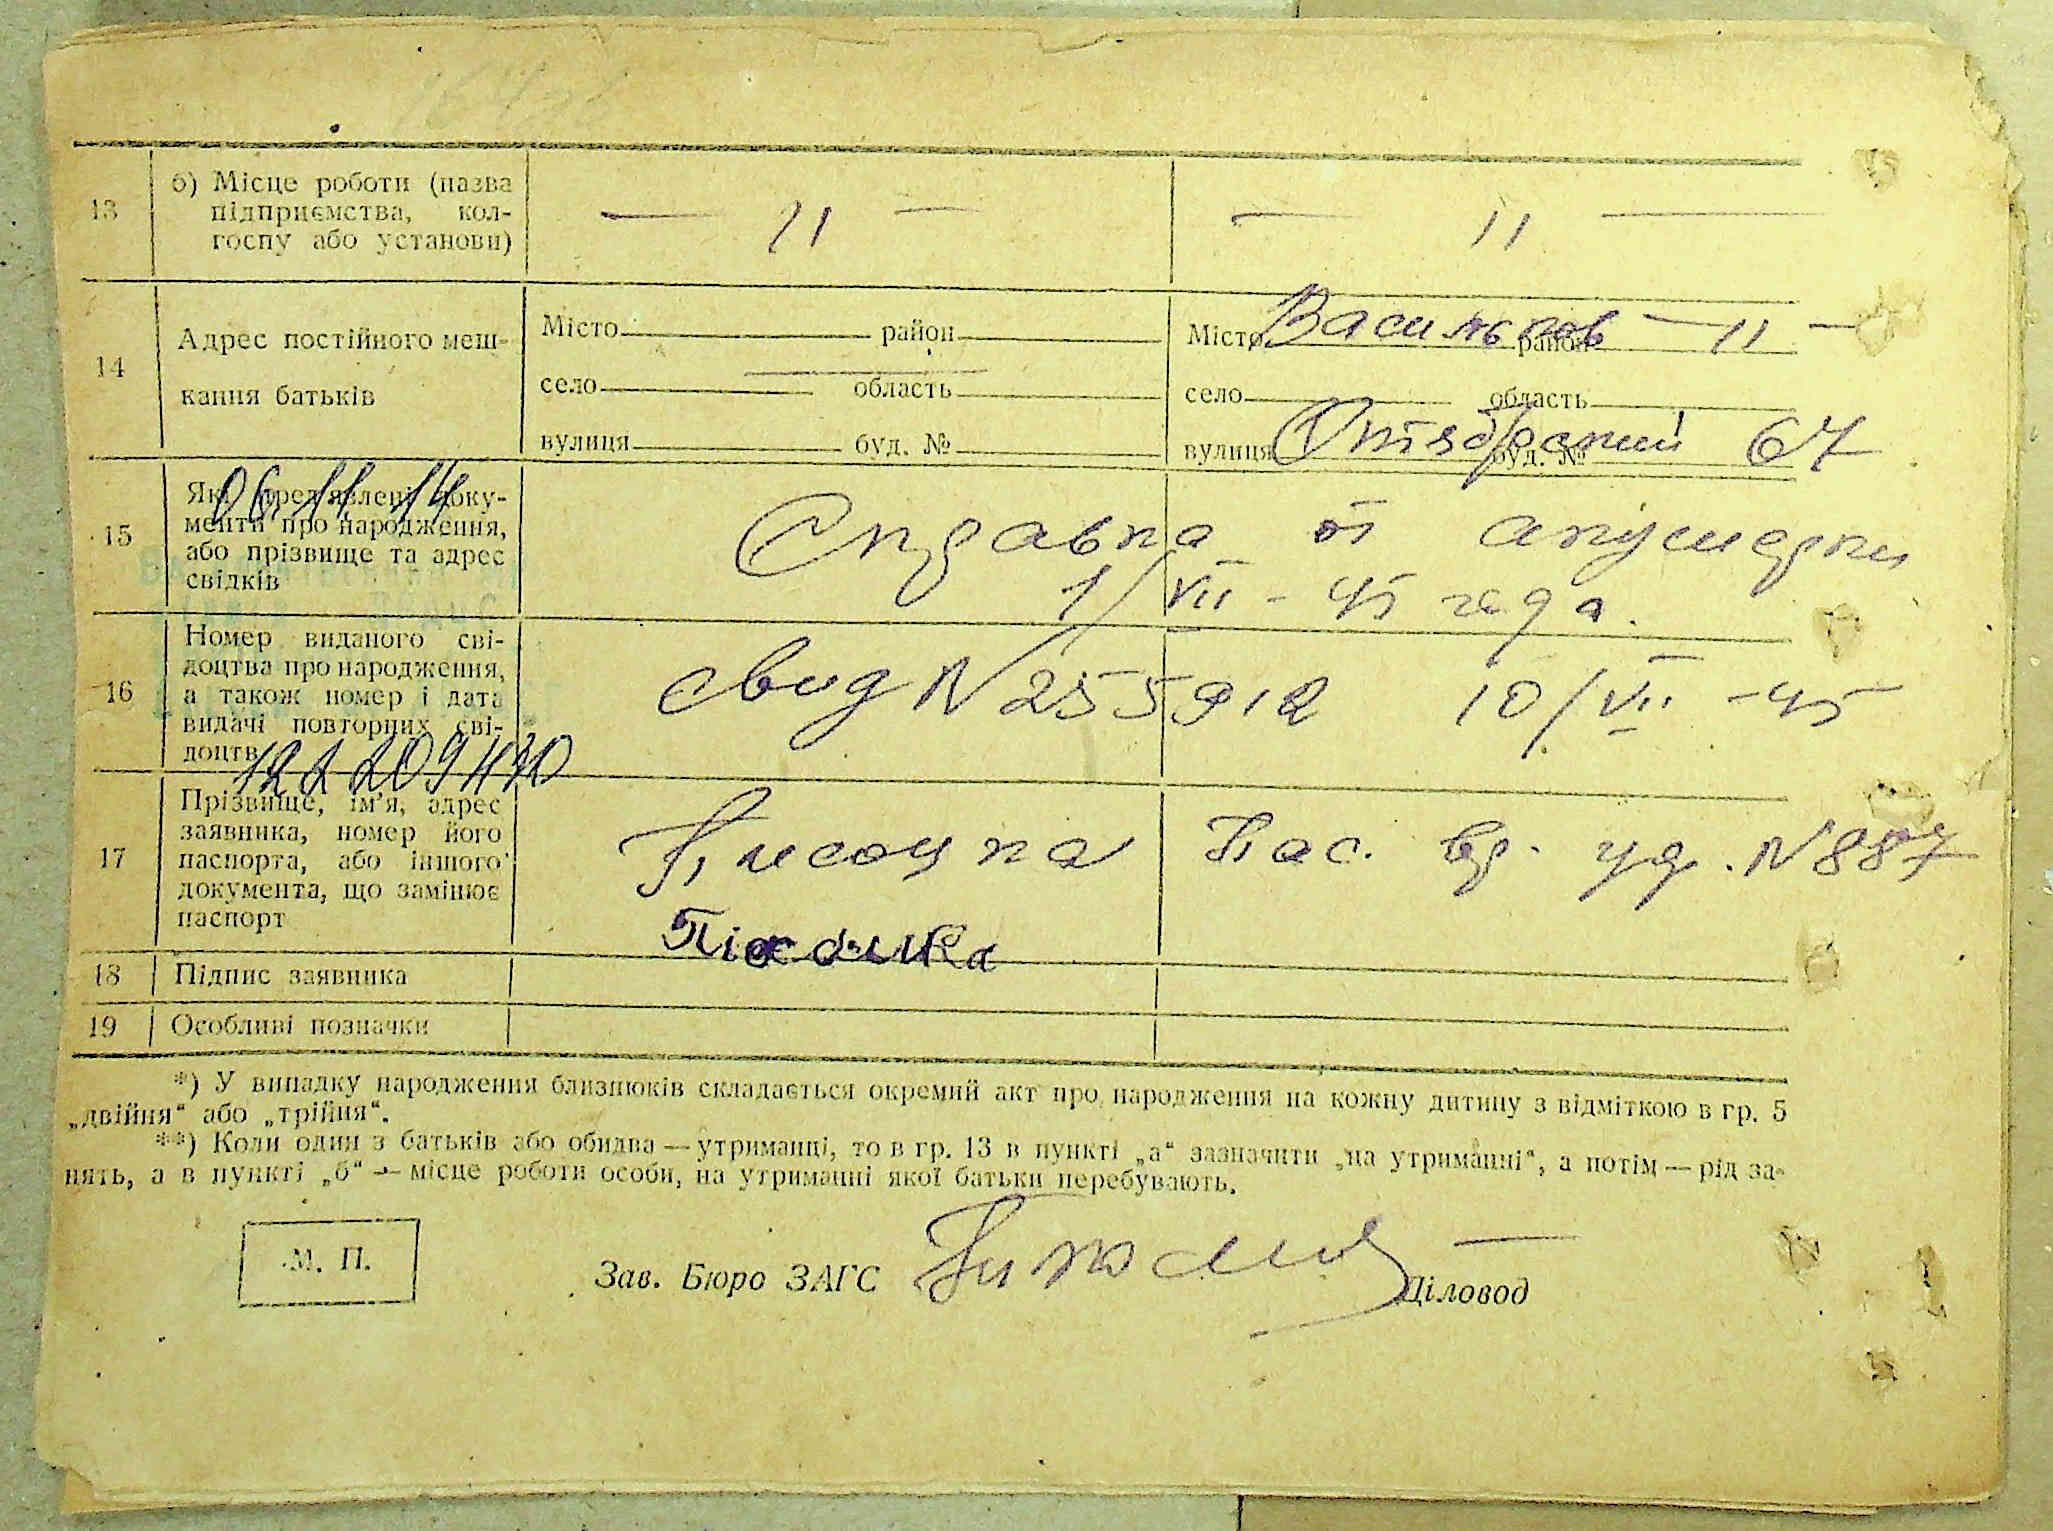 13
б) Місце роботи (назва
підприємства, кол-
госпу або установи)
— 11 —
— 11 —
14
Адрес постійного меш-
кання батьків
Місто район
село область
вулиця буд. №
Місто Васильков район — 11 —
село область
вулиця Октябрський буд. № 67
15
Які пред'явлені доку-
менти про народження,
або прізвище та адрес
свідків
06 11 14
Справка от акушерки
1/VII - 45 года.
16
Номер виданого сві-
доцтва про народження,
а також номер і дата
видачі повторних сві-
доцтв
свид N 255912 10/VII - 45
17
Прізвище, ім'я, адрес
заявника, номер його
паспорта, або іншого
документа, що замінює
паспорт
Пас. вр. уд. N 887
18
Підпис заявника
19
Особливі позначки
*) У випадку народження близнюків складається окремий акт про народження на кожну дитину з відміткою в гр. 5
„двійня“ або „трійня“.
**) Коли один з батьків або обидва — утриманці, то в гр. 13 в пункті „а“ зазначити „на утриманні“, а потім — рід за-
нять, а в пункті „б“ — місце роботи особи, на утриманні якої батьки перебувають.
М. П.
Зав. Бюро ЗАГС
Діловод